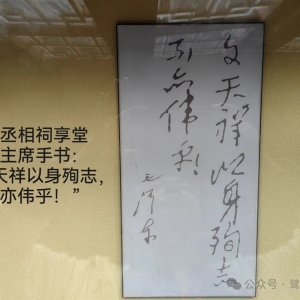 丞相祠享堂
主席手书：
天祥以身殉志，
亦伟乎！”
文天祥以身殉志
不亦伟乎
毛泽东
公众号·鹭